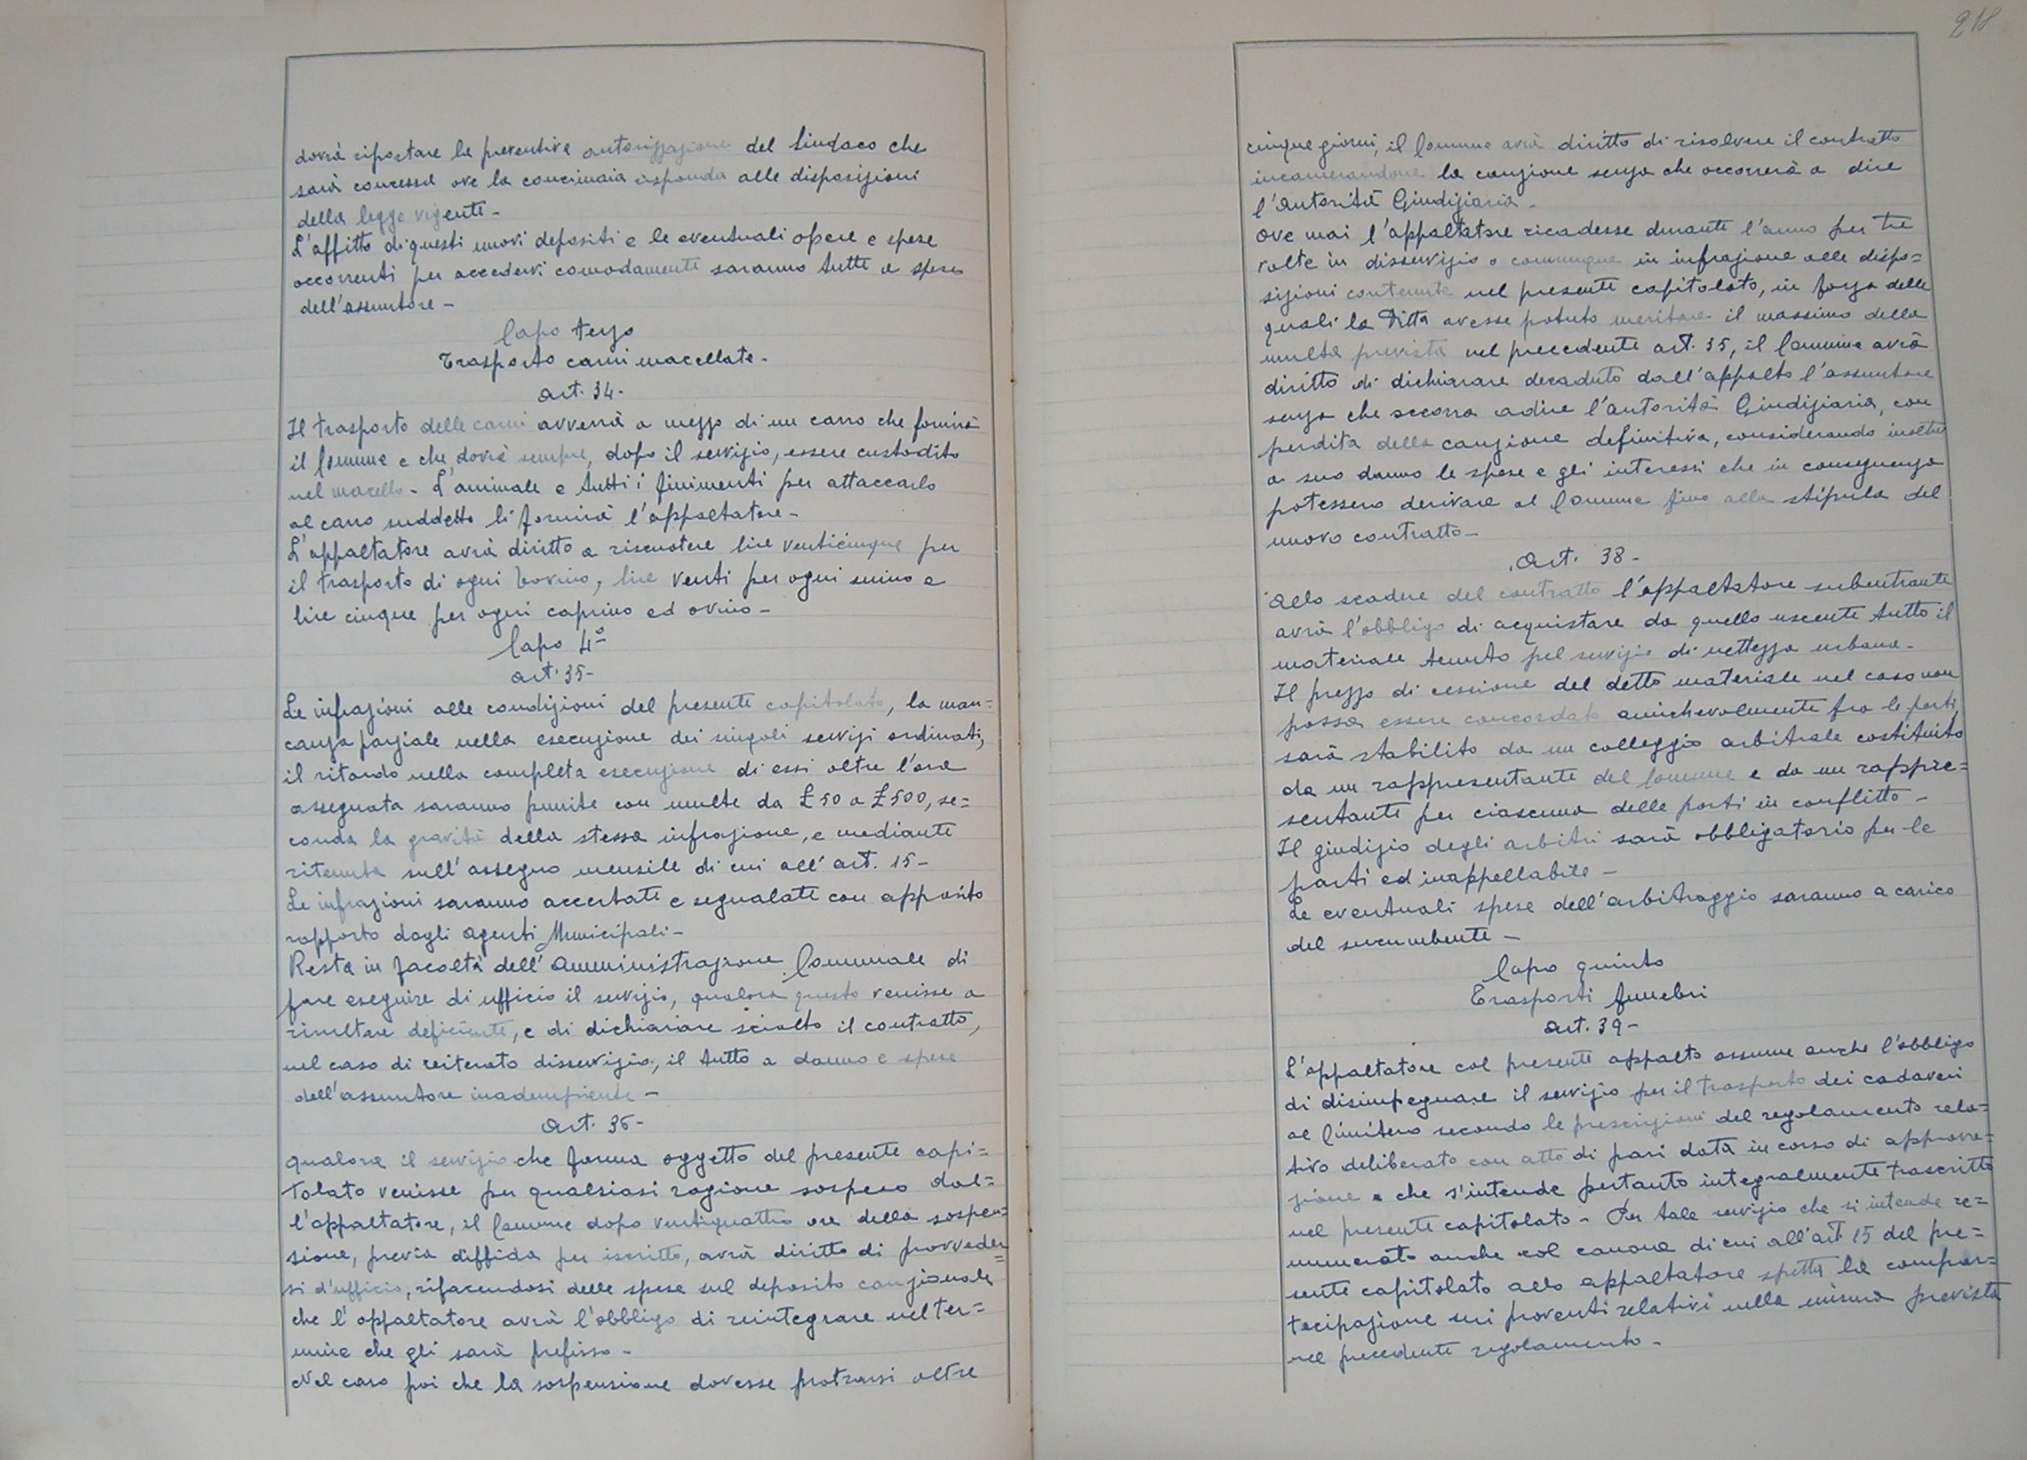 dovrà riportare la preventiva autorizzazione del Sindaco che
sarà concessa ove la concimaia risponda alle disposizioni
della legge vigente -
L'affitto di questi nuovi depositi e le eventuali opere e spese
occorrenti per accedervi comodamente saranno tutte a spese
dell'assuntore -
Capo terzo
Trasporto carni macellate -
Art. 34 -
Il trasporto delle carni avverrà a mezzo di un carro che fornirà
il Comune e che dovrà sempre, dopo il servizio, essere custodito
nel macello - L'animale e tutti i finimenti per attaccarlo
al carro suddetto li fornirà l'appaltatore -
L'appaltatore avrà diritto a riscuotere lire venticinque per
il trasporto di ogni bovino, lire venti per ogni suino e
lire cinque per ogni caprino ed ovino -
Capo 4º
Art. 35 -
Le infrazioni alle condizioni del presente capitolato, la man=
canza parziale nella esecuzione dei singoli servizi ordinati,
il ritardo nella completa esecuzione di essi oltre l'ora
assegnata saranno punite con multe da £ 50 a £ 500, se=
conda la gravità della stessa infrazione, e mediante
ritenuta sull'assegno mensile di cui all'art. 15 -
Le infrazioni saranno accertate e segnalate con apposito
rapporto dagli agenti Municipali -
Resta in facoltà dell'Amministrazione Comunale di
fare eseguire di ufficio il servizio, qualora questo venisse a
risultare deficiente, e di dichiarare sciolto il contratto,
nel caso di reiterato disservizio, il tutto a danno e spese
dell'assuntore inadempiente -
Art. 36 -
Qualora il servizio che forma oggetto del presente capi=
tolato venisse per qualsiasi ragione sospeso dal=
l'appaltatore, il Comune dopo ventiquattro ore della sospen=
sione, previa diffida per iscritto, avrà diritto di provveder=
si d'ufficio, rifacendosi delle spese sul deposito cauzionale
che l'appaltatore avrà l'obbligo di reintegrare nel ter=
mine che gli sarà prefisso -
Nel caso poi che la sospensione dovesse protrarsi oltre
218
cinque giorni, il Comune avrà diritto di risolvere il contratto
incamerandone la cauzione senza che occorrerà a dire
l'Autorità Giudiziaria -
Ove mai l'appaltatore ricadesse durante l'anno per tre
volte in disservizio o comunque in infrazione alle dispo=
sizioni contenute nel presente capitolato, in forza delle
quali la Ditta avesse potuto meritare il massimo della
multa prevista nel precedente art. 35, il Comune avrà
diritto di dichiarare decaduto dall'appalto l'assuntore
senza che occorra adire l'autorità Giudiziaria, con
perdita della cauzione definitiva, considerando inoltre
a suo danno le spese e gli interessi che in conseguenza
potessero derivare al Comune fino alla stipula del
nuovo contratto -
Art. 38 -
Allo scadere del contratto l'appaltatore subentrante
avrà l'obbligo di acquistare da quello uscente tutto il
materiale tenuto pel servizio di nettezza urbana -
Il prezzo di cessione del detto materiale nel caso non
possa essere concordato amichevolmente fra le parti,
sarà stabilito da un colleggio arbitrale costituito
da un rappresentante del Comune e da un rappre=
sentante per ciascuna delle parti in conflitto -
Il giudizio degli arbitri sarà obbligatorio per le
parti ed inappellabile -
Le eventuali spese dell'arbitraggio saranno a carico
del succumbente -
Capo quinto
Trasporti funebri
Art. 39 -
L'appaltatore col presente appalto assume anche l'obbligo
di disimpegnare il servizio per il trasporto dei cadaveri
al Cimitero secondo le prescrizioni del regolamento rela=
tivo deliberato con atto di pari data in corso di approva=
zione e che s'intende pertanto integralmente trascritto
nel presente capitolato - Per tale servizio che si intende re=
munerato anche col canone di cui all'art 15 del pre=
sente capitolato allo appaltatore spetta la compar=
tecipazione sui proventi relativi nella misura prevista
nel precedente regolamento -